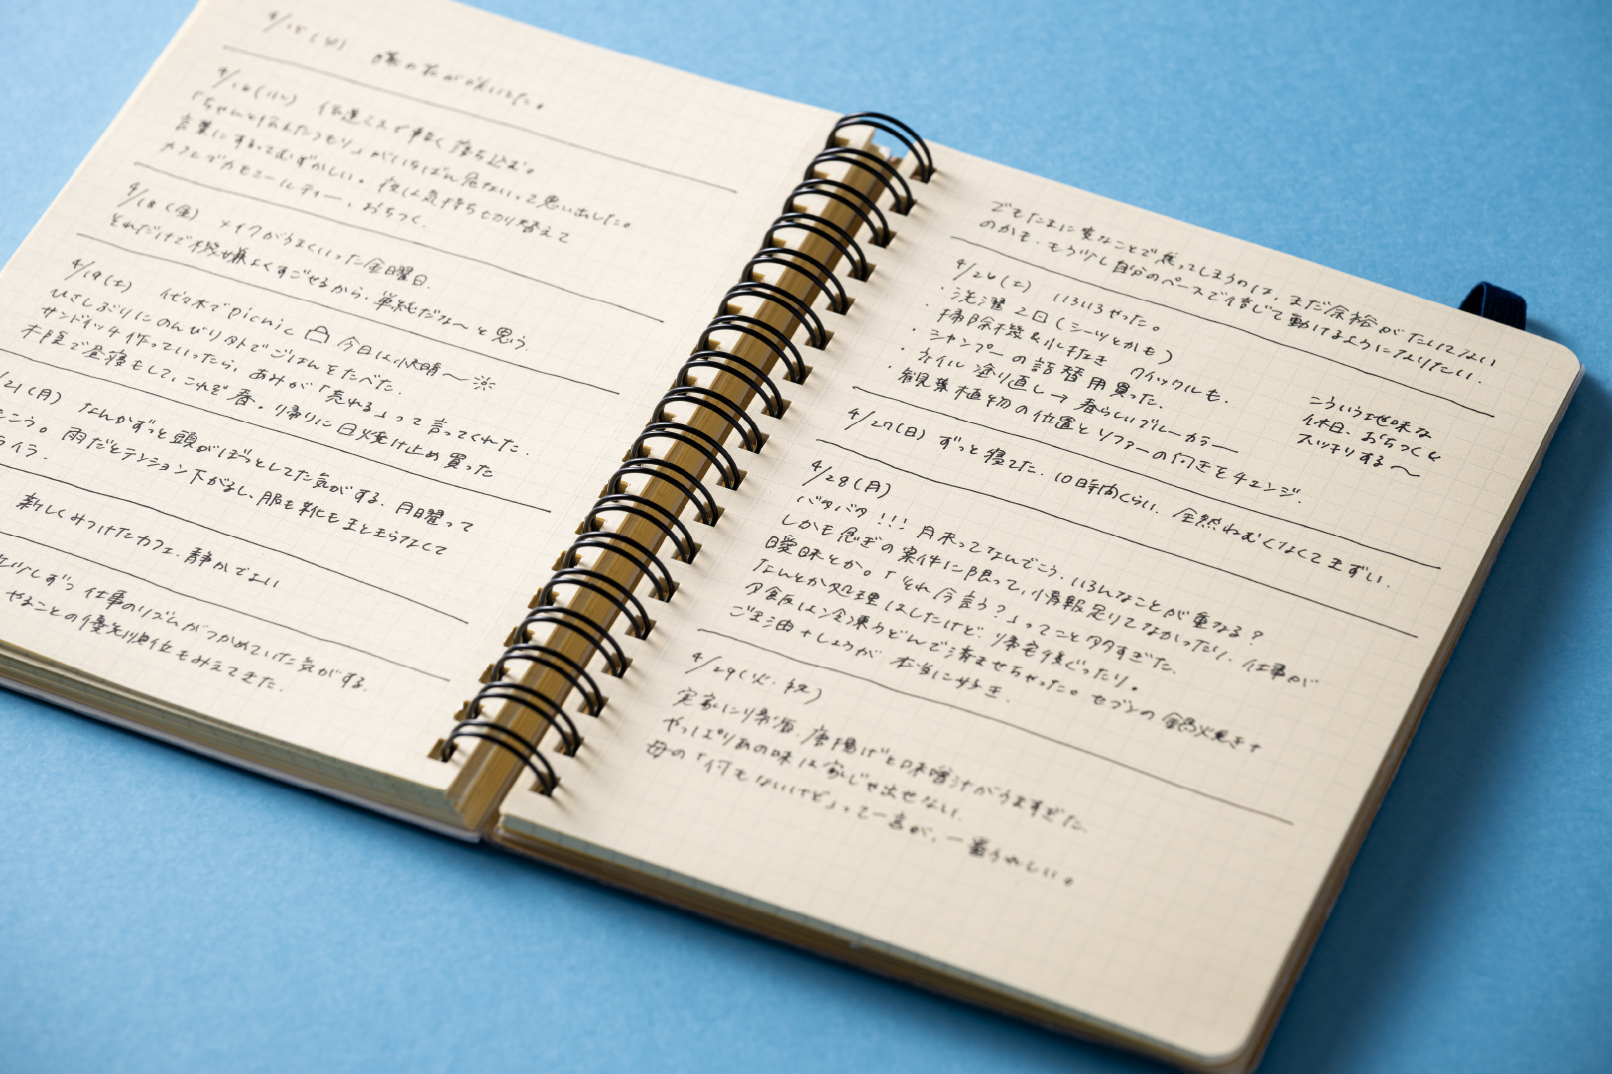 4/15(火)
の花が咲いてた。
4/16(水) 伝達ミスで軽く落ち込む。
「ちゃんと伝えたつもり」がいちばん危ないって思い出した。
言葉にするってむずかしい。夜は気持ち切り替えて
カフェでカモミールティー、おちつく。
4/18(金) メイクがうまくいった金曜日。
それだけで機嫌よくすごせるから、単純だな〜と思う。
4/19(土) 代々木でpicnic 今日は快晴〜
ひさしぶりにのんびり外でごはんをたべた。
サンドイッチ作っていったら、あみが「売れる」って言ってくれた。
木陰で昼寝もして、これぞ春。帰りに日焼け止め買った
/21(月) なんかずっと頭がぼっとしてた気がする。月曜って
こう。雨だとテンション下がるし、服も靴もまとまらなくて
イラ。
新しくみつけたカフェ、静かでよい
少しずつ仕事のリズムがつかめていた気がする。
やることの優先順位もみえてきた。
でもたまに変なことで焦ってしまうのは、まだ余裕がたいしてない
のかも。もう少し自分のペースで信じて動けるようになりたい。
4/26(土) いろいろやった。
・洗濯2回(シーツとかも)
・掃除機&水拭き クイックルも。
・シャンプーの詰替用買った。
・ネイル塗り直し→春らしいブルーカラー
・観葉植物の位置とソファーの向きをチェンジ。
こういう地味な
休日、おちつくし
スッキリする〜
4/27(日) ずっと寝てた。10時間くらい。全然ねむくなくてまずい。
4/28(月)
バタバタ!!! 月末ってなんでこう、いろんなことが重なる?
しかも急ぎの案件に限って、情報足りてなかったり、仕事が
曖昧とか。「それ今言う?」ってこと多すぎた。
なんとか処理はしたけど、帰宅後ぐったり。
夕飯は冷凍うどんで済ませちゃった。セブンの鍋焼き+
ごま油+しょうが 本当に好き。
4/29(火・祝)
実家に帰省。唐揚げと味噌汁がうますぎた
やっぱりあの味は家じゃ出せない。
母の「何もないけど」って一言が、一番うれしい。